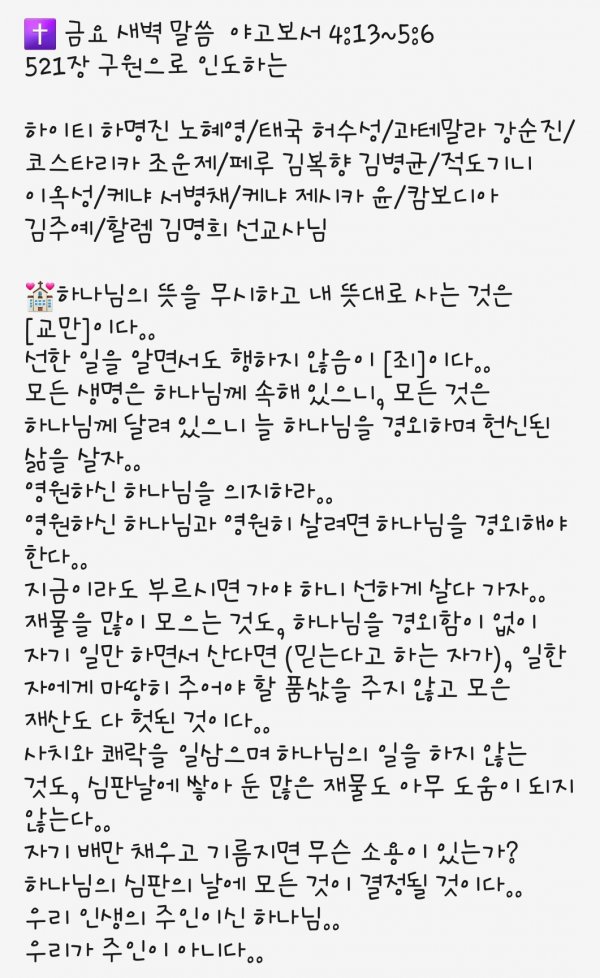 ✝️ 금요 새벽 말씀 야고보서 4:13~5:6
521장 구원으로 인도하는
하이티 하명진 노혜영/태국 허수성/과테말라 강순진/
코스타리카 조운제/페루 김복향 김병균/적도기니
이옥성/케냐 서병채/케냐 제시카 윤/캄보디아
김주예/할렘 김명희 선교사님
💒하나님의 뜻을 무시하고 내 뜻대로 사는 것은
[교만]이다..
선한 일을 알면서도 행하지 않음이 [죄]이다..
모든 생명은 하나님께 속해 있으니, 모든 것은
하나님께 달려 있으니 늘 하나님을 경외하며 헌신된
삶을 살자..
영원하신 하나님을 의지하라..
영원하신 하나님과 영원히 살려면 하나님을 경외해야
한다..
지금이라도 부르시면 가야 하니 선하게 살다 가자..
재물을 많이 모으는 것도, 하나님을 경외함이 없이
자기 일만 하면서 산다면 (믿는다고 하는 자가), 일한
자에게 마땅히 주어야 할 품삯을 주지 않고 모은
재산도 다 헛된 것이다..
사치와 쾌락을 일삼으며 하나님의 일을 하지 않는
것도, 심판날에 쌓아 둔 많은 재물도 아무 도움이 되지
않는다..
자기 배만 채우고 기름지면 무슨 소용이 있는가?
하나님의 심판의 날에 모든 것이 결정될 것이다..
우리 인생의 주인이신 하나님..
우리가 주인이 아니다..